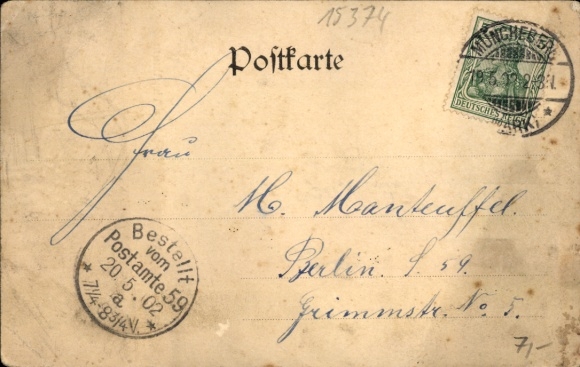 15374
Postkarte
MÜNCHEBERG
19.5.02.2-3N.
(MARK) *
DEUTSCHES REICH
Frau
M. Manteuffel.
Berlin. S 59.
Grimmstr. No 5.
Bestellt
vom
Postamte 59
20.5.02
a.
* 7¼-8¾V. *
7,-